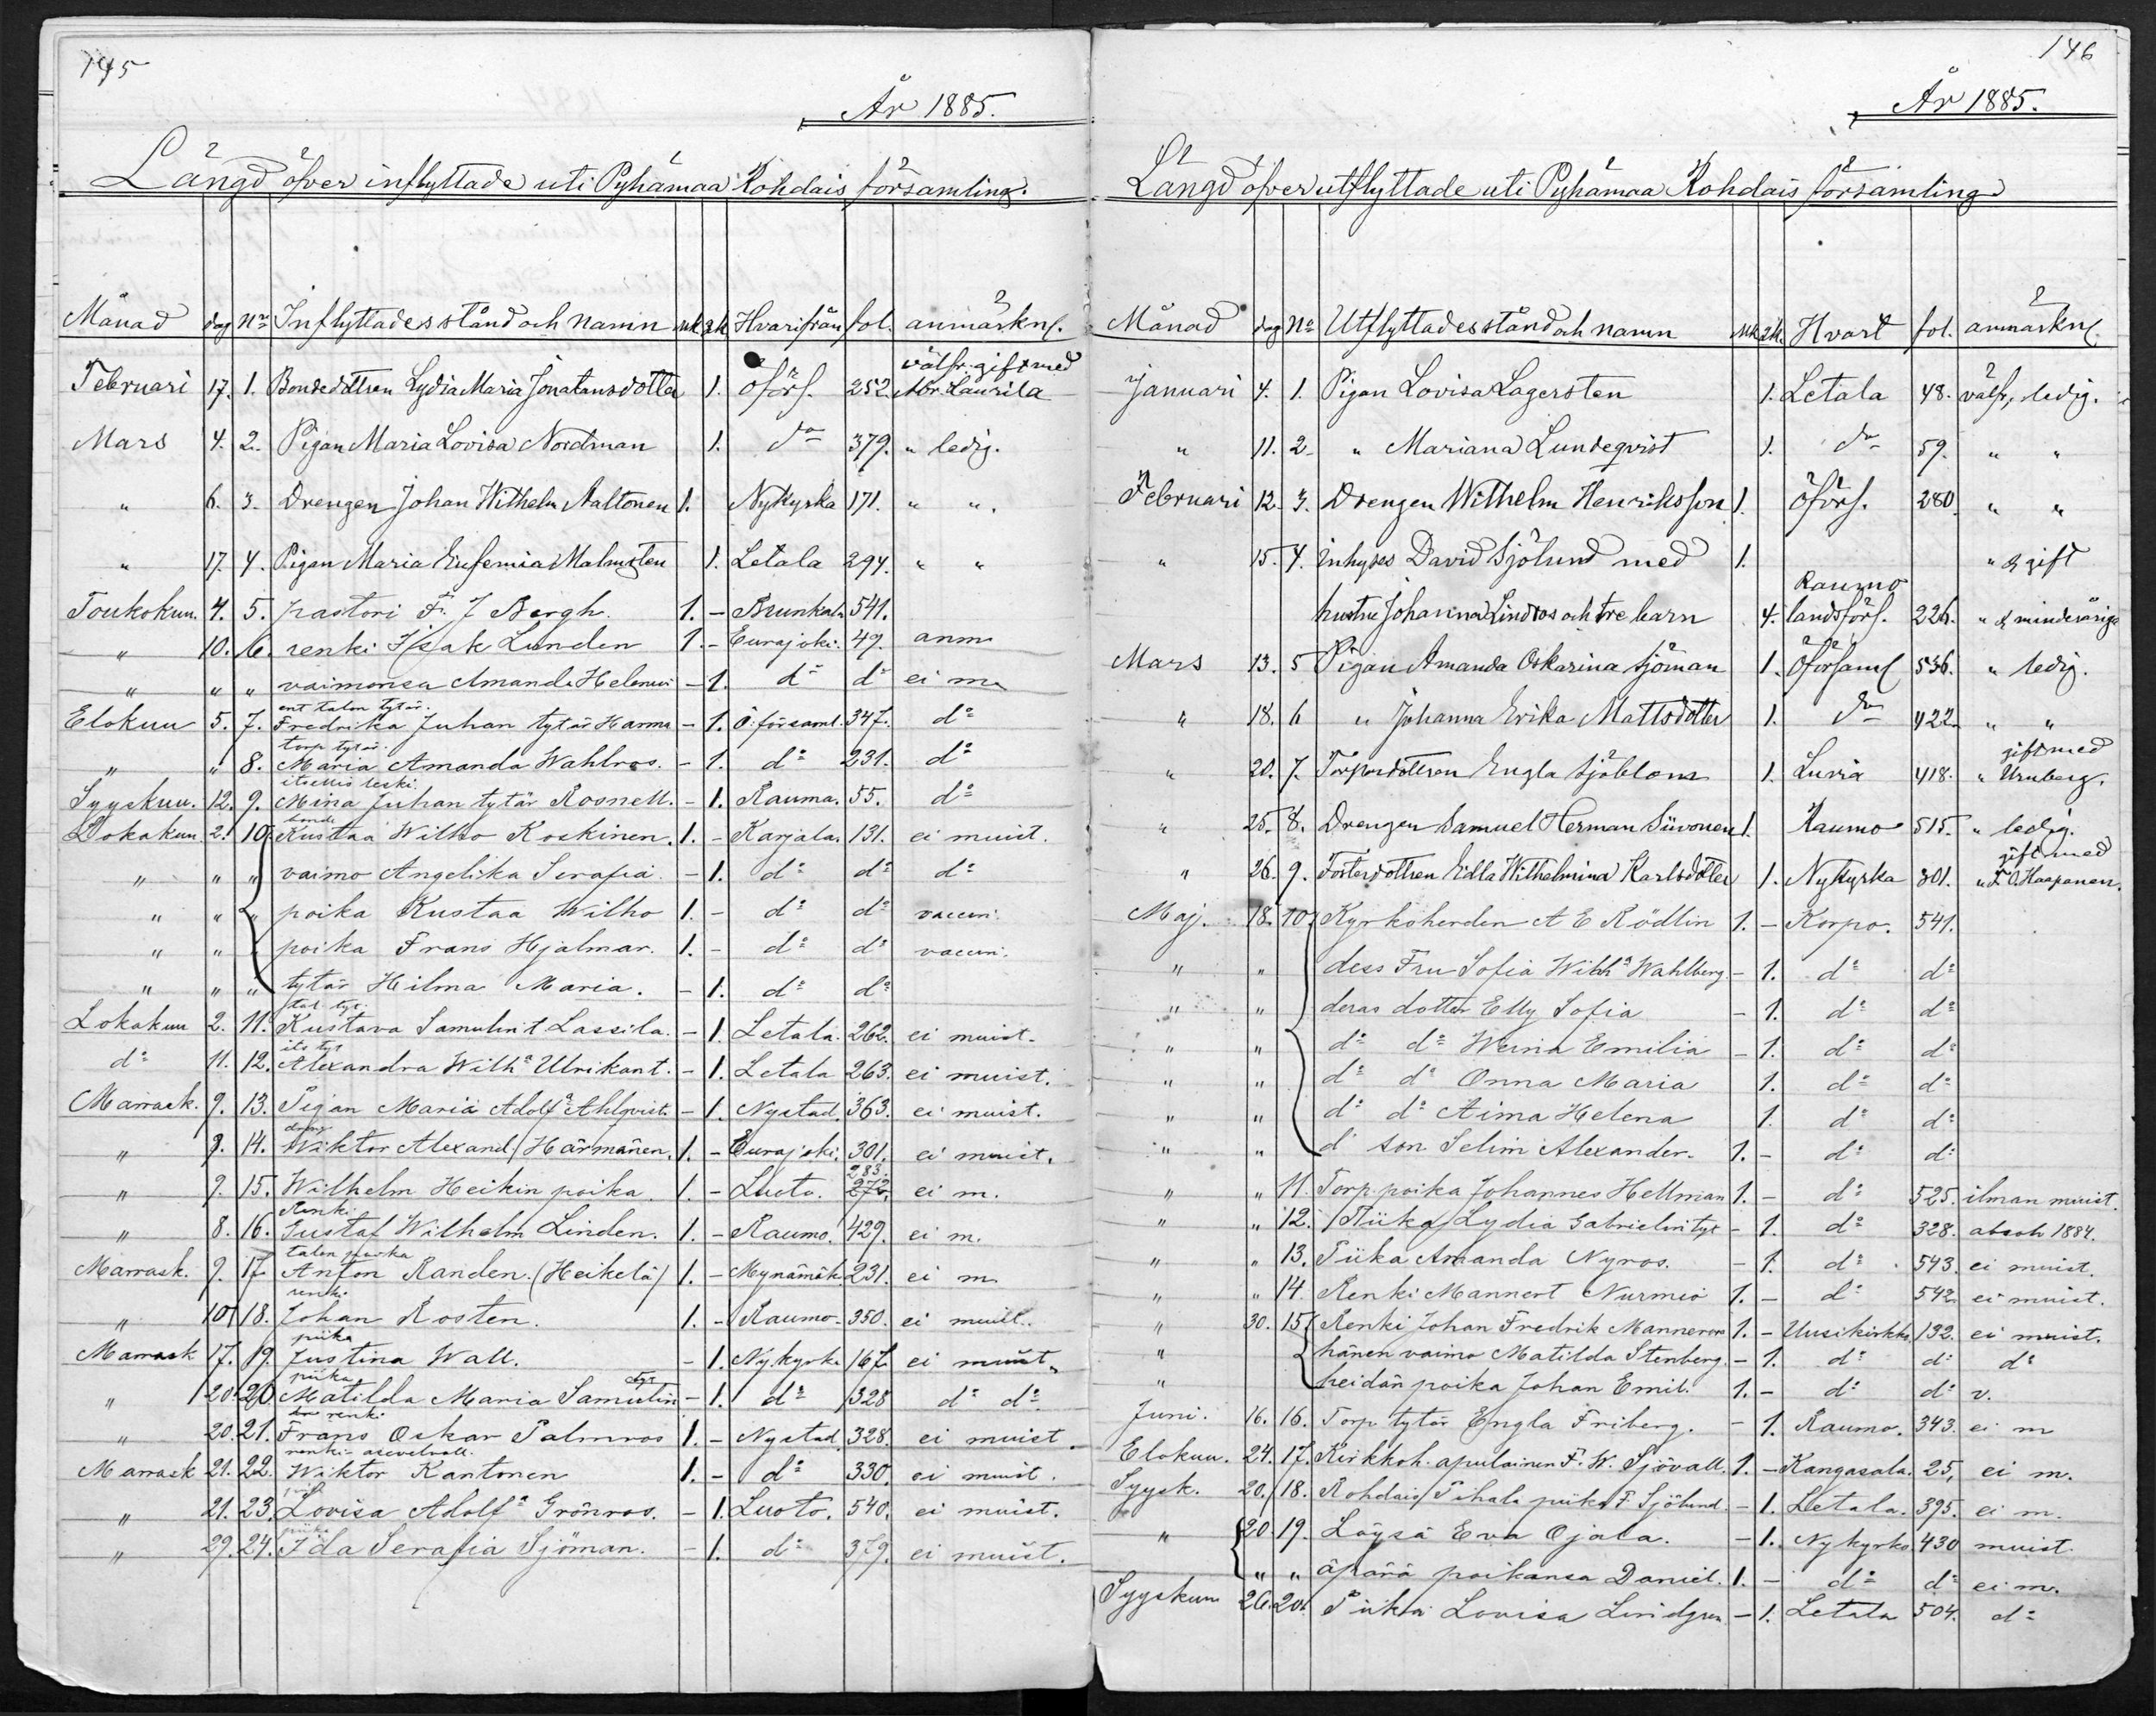 145
År 1885.
Längd öfver inflyttade uti Pyhämaa Rohdais församling.
Månad dag No Inflyttades stånd och namn mk qk Hvarifrån fol. anmärkn.
välfr. gift med
Februari 17. 1. Bondedottren Lydia Maria Jonatansdotter 1. Öförs. 252. Laurila
Mars 4. 2. Pigan Maria Lovisa Nordman 1. do 379. " ledig.
" 6. 3. Drengen Johan Wilhelm Aaltonen 1. Nykyrka 171. " "
" 17. 4. Pigan Maria Eufemia Malmsten 1. Letala 294. " "
Toukokuu. 4. 5. pastori F. J Bergh. 1. - Brunkala 541.
" 10. 6. renki Isak Lunden 1. - Eurajoki. 49. anm
" " " vaimonsa Amanda Helena - 1. do do ei m.
ent talon tytär.
Elokuu 5. 7. Fredrika Juhan tytär Hanna - 1. Ö. församl. 347. do
torp tytär.
" " 8. Maria Amanda Wahlros. - 1. do 231. do
itsellis leski.
Syyskuu. 12. 9. Mina Juhan tytär Rosnell. - 1. Rauma. 55. do
bonde
Lokakuu. 2. 10. Kustaa Wilho Koskinen. 1. - Karjala. 131. ei muist.
" " " vaimo Angelika Serafia. - 1. do do do
" " " poika Kustaa Wilho 1. - do do vaccin.
" " " poika Frans Hjalmar. 1. - do do vaccin.
" " " tytär Heilma Maria. - 1. do do
tal. tyt.
Lokakuu 2. 11. Kustava Samulint Lassila. - 1. Letala. 262. ei muist.
its tyt
do 11. 12. Alexandra Wilha Ulrikant. - 1. Letala 263. ei muist.
Marrask. 9. 13. Pigan Maria Adolfa Ahlqvist. - 1. Nystad. 363. ei muist.
dreng
" 9. 14. Wiktor Alexand. Härmänen. 1. - Eurajoki. 301. ei muist.
283.
" 9. 15. Wilhelm Heikin poika. 1. - Luoto. 272. ei m.
Renki
" 8. 16. Gustaf Wilhelm Linden. 1. - Raumo. 429. ei m.
talon poika
Marrask. 9. 17 Anton Randen. (Heikelä) 1. - Mynämäk. 231. ei m.
renki
" 10. 18. Johan Rosten. 1. - Raumo. 350. ei muist.
piika
Marrask 17. 19. Justina Wall. - 1. Nykyrka 167 ei muist.
piika
" 20. 20 Matilda Maria Samulin tyt - 1. do 328 do do
renki
" 20. 21. Frans Oskar Palmros 1. - Nystad 328. ei muist.
renki - asevelvoll.
Marrask 21. 22. Wiktor Kantonen 1. - do 330. ei muist.
" 21. 23. Lovisa Adolfa Grönros. - 1. Luoto. 540. ei muist.
piika
" 29. 24. Ida Serafia Sjöman. - 1. do 379. ei muist.
146
År 1885.
Längd öfver utflyttade uti Pyhämaa Rohdais församling
Månad dag No Utflyttades stånd och namn Mk qk. Hvart fol. anmärkn.
Januari 4. 1. Pigan Lovisa Lagersten 1. Letala 48. välfr, ledig.
" 11. 2. " Mariana Lundeqvist 1. do 59. " "
Februari 12. 3. Drengen Wilhelm Henriksson 1. Öförs. 280. " "
" 15. 4. Inhyses David Sjölund med 1. " & gift
Raumo
hustru Johanna Lindros och tre barn 4. landsförs. 226. " & minderåriga
Mars 13. 5 Pigan Amanda Oskarina Sjöman 1. Öförsaml 536. " ledig.
" 18. 6 " Johanna Erika Mattsdotter 1. do 422. " "
gift med
" 20. 7. Torparedottren Engla Sjöblom 1. Luvia 418. " Uruberg.
" 25. 8. Drengen Samuel Herman Siivonen 1. Raumo 515. " ledig.
gift med
" 26. 9. Fosterdottren Eidla Wilhelmina Karlsdotter 1. Nykyrka 301. " F. O. Haapanen.
Maj. 18. 10. Kyrkoherden A E Rödlin 1. - Korpo. 541.
" " dess Fru Sofia Wilha Wahlberg. - 1. do do
" " deras dotter Elly Sofia - 1. do do
" " do do Weina Emilia - 1. do do
" " do do Onna Maria 1. do do
" " do do Aima Helena 1. do do
" " do son Selim Alexander. 1. - do do
" " 11. Torp. poika Johannes Hellman 1. - do 525. ilman muist.
" " 12. Piika Lydia Gabrielin tyt - 1. do 328. absol. 1884.
" " 13. Piika Amanda Nyros. - 1. do 543. ei muist.
" " 14. Renki Mannert Nurmio 1. - do 542. ei muist.
" 30. 15. Renki Johan Fredrik Manneros 1. - Uusikirkko 132. ei muist.
" hänen vaimo Matilda Stenberg. - 1. do do do
" heidän poika Johan Emil. 1. - do do v.
Juni. 16. 16. Torp tytär Engla Friberg. - 1. Raumo. 343. ei m
Elokuu. 24. 17. Kirkkoh. apulainen F. W. Sjövall. 1. - Kangasala. 25, ei m.
Syysk. 20. 18. Rohdais Pihala piika F. Sjölund. - 1. Letala. 395. ei m.
" 20. 19. Löysä Eva Ojala. - 1. Nykyrko 430 muist.
" " äpärä poikansa Daniel. 1. - do do ei m.
Syyskuu 26. 20. Piika Lovisa Lindgren - 1. Letala 504. do